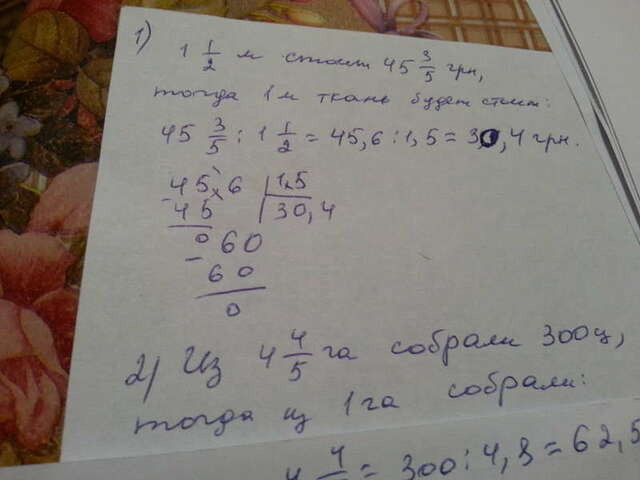 1)
1 1/2 м стоит 45 3/5 грн,
тогда 1 м ткань будет стоит:
45 3/5 : 1 1/2 = 45,6 : 1,5 = 30,4 грн.
45,6 | 1,5
- 45 | 30,4
0 60
- 60
0
2) Из 4 4/5 га собрали 300 ц,
тогда из 1 га собрали:
4 4/5 = 300 : 4,8 = 62,5